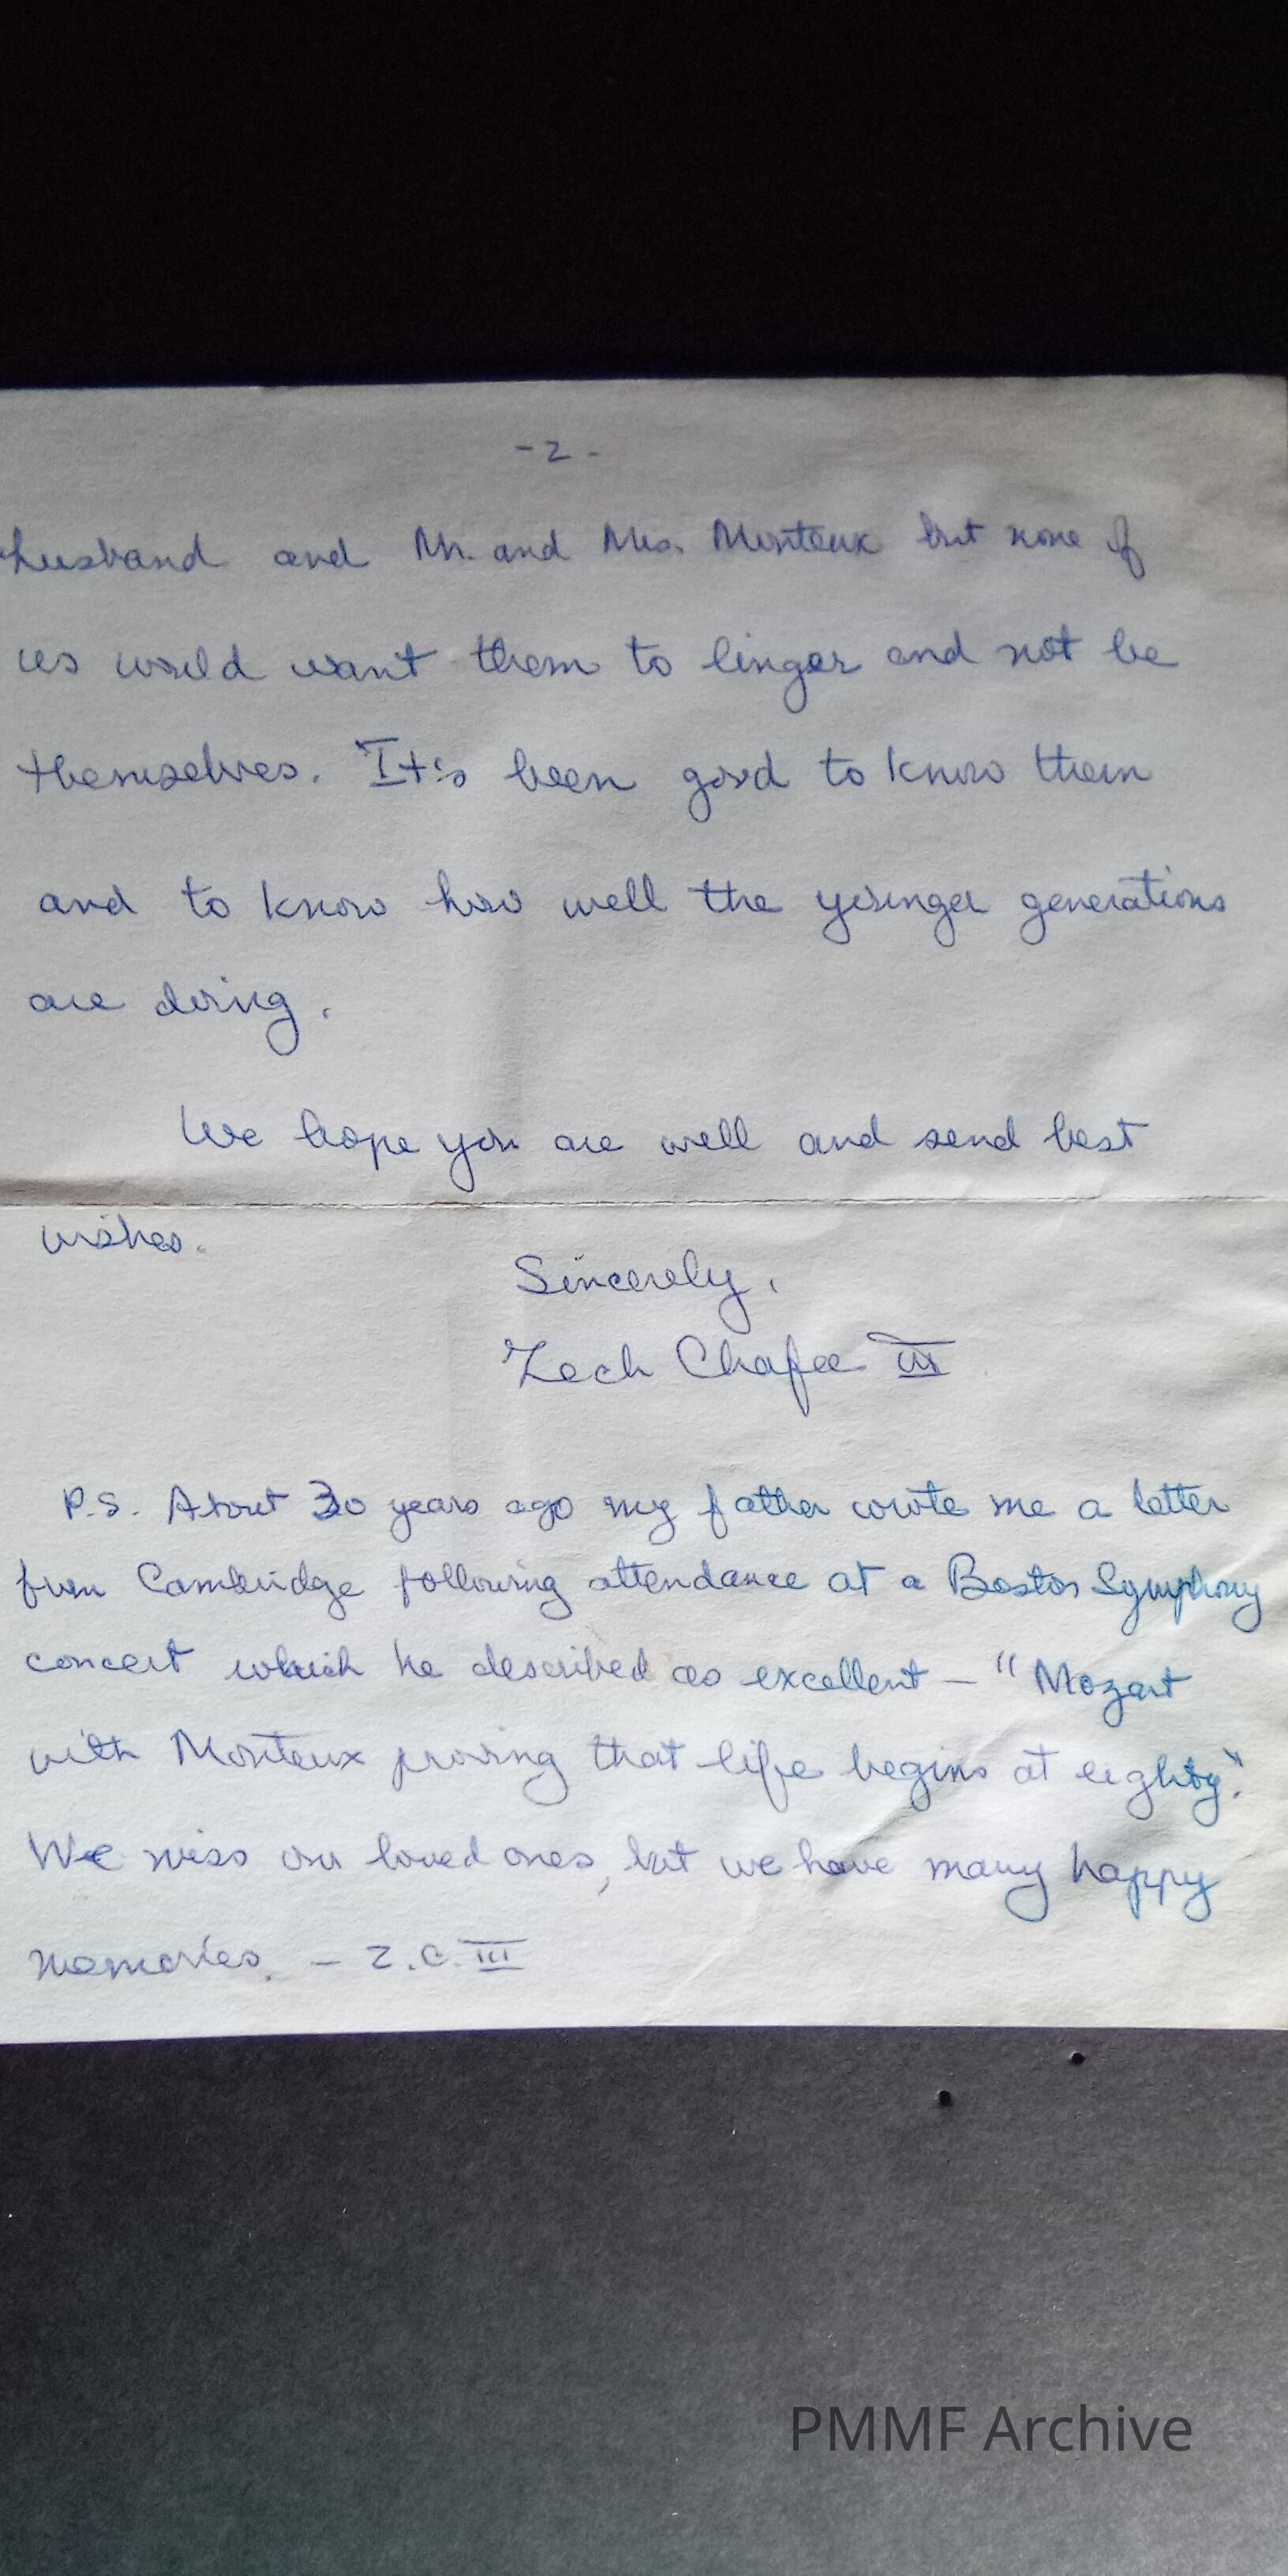 -2-
husband and Mr. and Mrs. Monteux but none of
us would want them to linger and not be
themselves. It's been good to know them
and to know how well the younger generations
are doing.
We hope you are well and send best
wishes.
Sincerely,
Zech Chafee III
P.S. About 30 years ago my father wrote me a letter
from Cambridge following attendance at a Boston Symphony
concert which he described as excellent — "Mozart
with Monteux proving that life begins at eighty."
We miss our loved ones, but we have many happy
memories. — Z.C. III
PMMF Archive